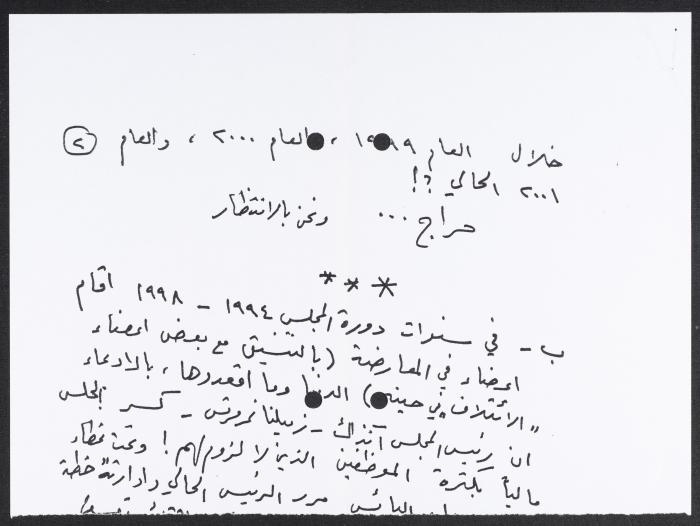 خلال العام ١٩٩٩ ، العام ٢٠٠٠ ، والعام ٢
٢٠٠١ الحالي ؟!
حراج ... ونحن بالانتظار
* * *
ب - في سنوات دورة المجلس ١٩٩٤ - ١٩٩٨ اقام
اعضاء في المعارضة (بالتنسيق مع بعض اعضاء
"الائتلاف" في حينه) الدنيا وما اقعدوها ، بالادعاء
ان رئيس المجلس آنذاك - - كسر المجلس
مالياً بكثرة الموظفين الذين لا لزوم لهم ! وتحت غطاء
البائس مرر الرئيس الحالي وادارته خطة